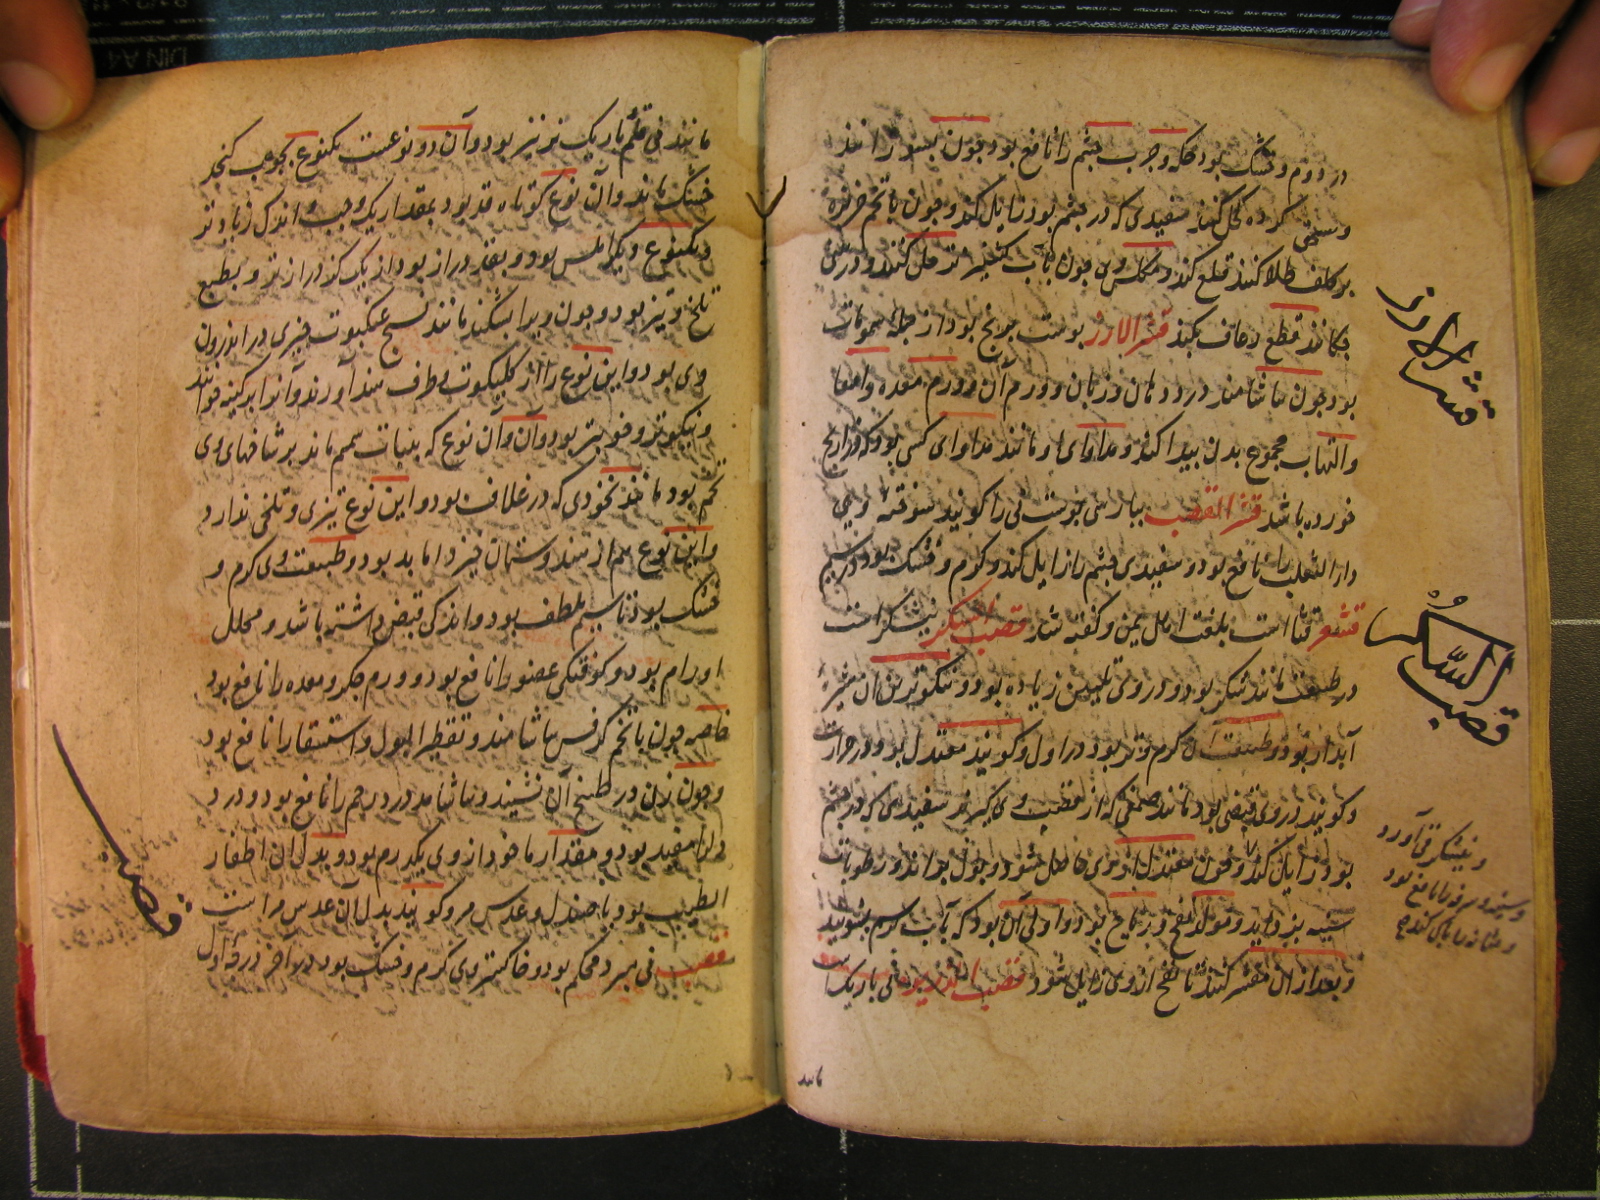 در دوم و خشک بود حکه و جرب چشم را نافع بود و چون بسوزانند
و سحق کرده کحل کنند سفیدی که در چشم بود زایل کند و چون با تخم خربزه
بر کلف طلا کنند قطع کند و
بچکانند قطع رعاف بکند قشر الارز پوست برنج بود از جمله سمومات
بود چون بیاشامند درد دهان و زبان و ورم آن و ورم معده و امعا
و التهاب مجموع بدن پیدا کند و مداوای او مانند مداوای کسی بود که ذراریح
خورده باشد قشر القصب بپارسی پوست نی را گویند سوخته وی
داء الثعلب را نافع بود و سفیدی چشم را زایل کند و گرم و خشک بود در سیم
قشعر قثا است بلغت اهل یمن و گفته شد قصب السکر نیشکر است
در طبیعت مانند شکر بود و در وی تلیین زیاده بود و نیکوترین آن شیرین
آبدار بود و طبیعت آن گرم و تر بود در اول و گویند معتدل بود در حرارت
و گویند در وی قبضی بود مانند صمغی که از قصب وی گیرند سفیدی که در چشم
بود زایل کند و خون معتدل از وی حاصل شود و بول براند و رطوبات
سینه بزداید و مولد نفخ و ریاح بود و اولی آن بود که بآب گرم بشویند
و بعد از آن مقشر کنند تا نفخ از وی زایل شود قصب الذریره نی باریک است
مانند
قشر الارز
قصب السکر
و نیشکر قی آورد
و سینه و سرفه را نافع بود
و مثانه را پاک کند
مانند نی قلم باریک تر نیز بود و آن دو نوعست یکنوع بچوب کنجد
خشک ماند و آن نوع کوتاه قد بود بمقدار یک وجب و اندک زیاده تر
و یکنوع دیگر املس بود و بقد دراز بود از یک گز دراز تر و بطعم
تلخ و تیز بود و چون ویرا بشکنند مانند نسج عنکبوت چیزی در اندرون
وی بود و این نوع را از کلیکوت بطرف هند آورند و آنرا برکینه خوانند
و نیکوتر و خوبتر بود و آن نوع که بنبات سمسم ماند بر شاخهای وی
تخم بود مانند نخودی که در غلاف بود و این نوع تیزی و تلخی ندارد
و این نوع هم از هندوستان خیزد اما بد بود و طبیعت وی گرم و
خشک بود تا سیم ملطف بود و اندکی قبض داشته باشد و محلل
اورام بود و کوفتگی عضو را نافع بود و ورم جگر و معده را نافع بود
خاصه چون با تخم کرفس بیاشامند و تقطیر البول و استسقا را نافع بود
و چون زن در طبیخ آن نشیند و بیاشامد درد رحم را نافع بود و درد
مفید بود و مقدار ماخوذ از وی یکدرم بود و بدل آن اظفار
الطیب بود با صندل و عدس مر و گویند بدل آن عدس مر است
قصب نی سرد محکم بود و خاکستر وی گرم و خشک بود در آخر درجه اول
قصب